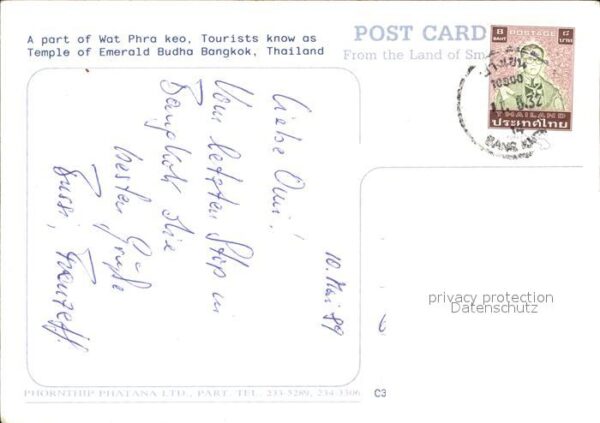 A part of Wat Phra keo, Tourists know as
Temple of Emerald Budha Bangkok, Thailand
POST CARD
From the Land of Sm
8 BAHT
POSTAGE
๘ บาท
THAILAND
ประเทศไทย
10500
BANG
10. Mai 89
Liebe Omi!
Vom letzten Stop in
Bangkok die
besten Grüße
Bussi,
privacy protection
Datenschutz
PHORNTHIP PHATANA LTD., PART. TEL. 233-5289, 234-3306
C3